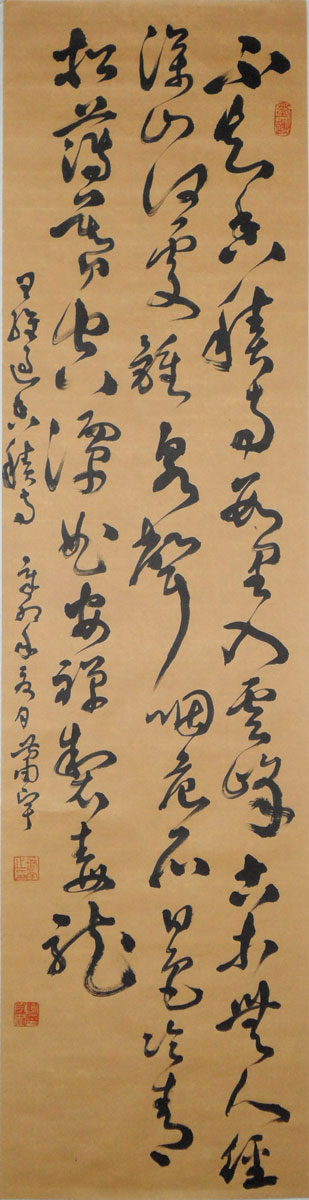 不知香積寺數里入雲峰古木無人經
深山何處鐘泉聲咽危石日色冷青
松薄暮空潭曲安禪製毒龍
王維過香積寺 辛卯年夏日蕭宇